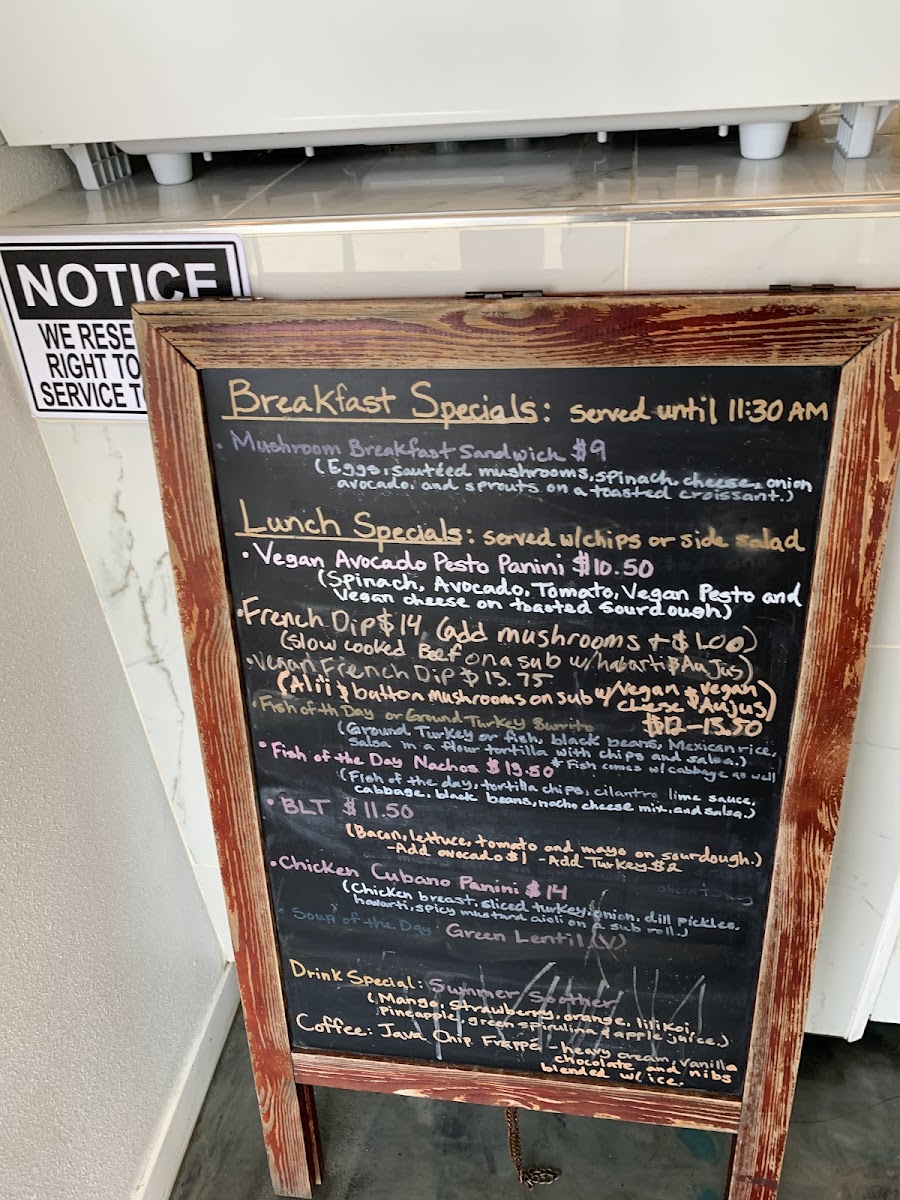 NOTICE
WE RESE
RIGHT TO
SERVICE T
Breakfast Specials: served until 11:30 AM
• Mushroom Breakfast Sandwich $9
(Eggs, sautéed mushrooms, spinach, cheese, onion
avocado, and sprouts on a toasted croissant.)
Lunch Specials: served w/chips or side salad
• Vegan Avocado Pesto Panini $10.50
(Spinach, Avocado, Tomato, Vegan Pesto and
Vegan cheese on toasted Sourdough)
• French Dip $14 (add mushrooms + $1.00)
(Slow cooked Beef on a sub w/havarti & Au Jus)
• Vegan French Dip $13.75
(Alii & button mushrooms on sub w/vegan & vegan
cheese & Aujus)
• Fish of th Day or Ground Turkey Burrito $12-15.50
(Ground Turkey or fish, black beans, Mexican rice,
salsa in a flour tortilla with chips and salsa.)
• Fish of the Day Nachos $19.50 * Fish comes w/ cabbage as well
(Fish of the day, tortilla chips, cilantro lime sauce,
cabbage, black beans, nacho cheese mix, and salsa.)
• BLT $11.50
(Bacon, lettuce, tomato and mayo on sourdough.)
-Add avocado $1 -Add Turkey $2
• Chicken Cubano Panini $14
(Chicken breast, sliced turkey, onion, dill pickles,
havarti, spicy mustard aioli on a sub roll.)
• Soup of the Day: Green Lentil (V)
Drink Special: Summer Soother
(Mango, strawberry, orange, lilikoi,
pineapple, green spirulina & apple juice.)
Coffee: Java Chip Frappé - heavy cream, vanilla
chocolate and nibs
blended w/ ice.